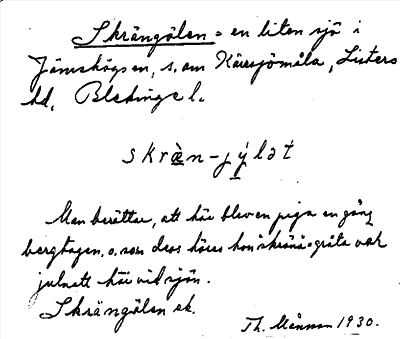 Skrängölen = en liten sjö i
Jämshögs sn, s. om Kärrsjömåla, Listers
hd, Blekinge l.
skræ̀n-jý̤lət
Man berättar, att här blev en piga en gång
bergtagen o. som dess höres hon skräna o gråta var
julnatt här vid sjön.
Skrängölen ek.
Th. Månsson 1930.